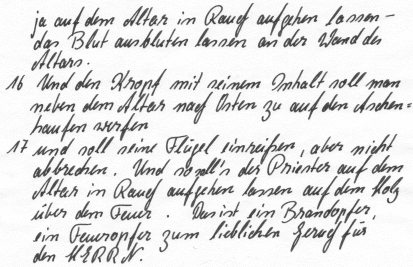 ja auf dem Altar in Rauch aufgehen lassen –
das Blut ausbluten lassen an der Wand des
Altars.
16 Und den Kropf mit seinem Inhalt soll man
neben dem Altar nach Osten zu auf den Aschen=
haufen werfen
17 und soll seine Flügel einreißen, aber nicht
abbrechen. Und so soll's der Priester auf dem
Altar in Rauch aufgehen lassen auf dem Holz
über dem Feuer. Das ist ein Brandopfer,
ein Feueropfer zum lieblichen Geruch für
den HERRN.